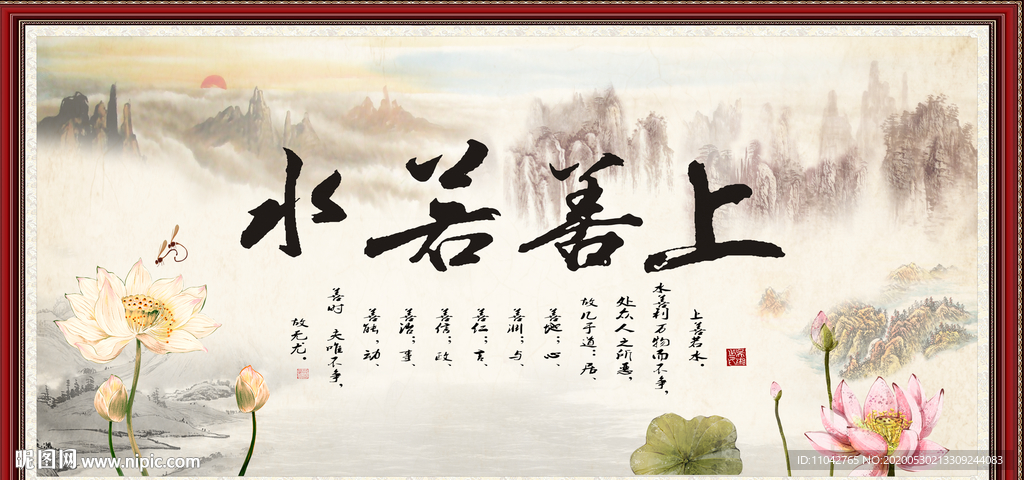 上善若水
上善若水。
水善利万物而不争,
处众人之所恶,
故几于道:居、
善地;心、
善渊;与、
善仁;言、
善信;政、
善治;事、
善能;动、
善时 夫唯不争,
故无尤。
昵图网 www.nipic.com
ID:11042765 NO:20200530213309244083